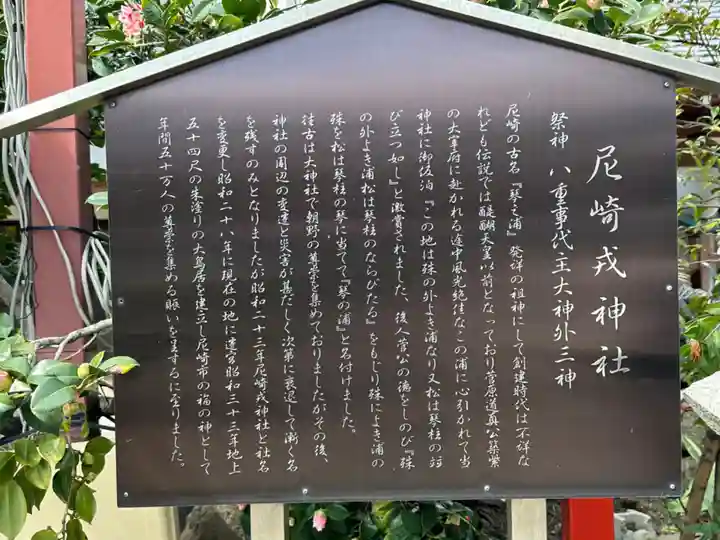 尼崎戎神社
祭神 八重事代主大神外三神
尼崎の古名『琴之浦』発祥の祖神にして創建時代は不詳な
れども伝説では醍醐天皇以前となっており菅原道真公築紫
の大宰府に赴かれる途中風光絶佳なこの浦に心引かれて当
神社に御仮泊『この地は殊の外よき浦なり又松は琴柱の如
び立つ如し』と激賞されました、後人菅公の徳をしのび『殊
の外よき浦松は琴柱のならびたる』をもじり殊によき浦の
殊を松は琴柱の琴に当てて『琴の浦』と名付けました。
往古は大神社で朝野の尊崇を集めておりましたがその後、
神社の周辺の変遷と災害が甚だしく次第に衰退して漸く名
を残すのみとなりましたが昭和二十三年尼崎戎神社と社名
を変更し昭和二十八年に現在の地に遷宮昭和三十三年地上
五十四尺の朱塗りの大鳥居を建立し尼崎市の福の神として
年間五十万人の尊崇を集める賑いを呈するに至りました。